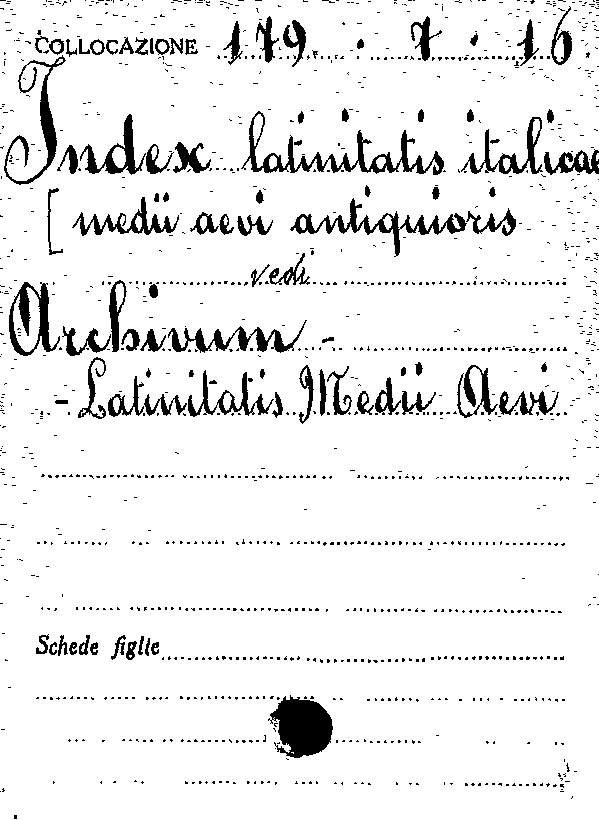 COLLOCAZIONE 179. 7. 16.
Index latinitatis italicae
[ medii aevi antiquioris
vedi
Archivum -
- Latinitatis Medii Aevi
Schede figlie